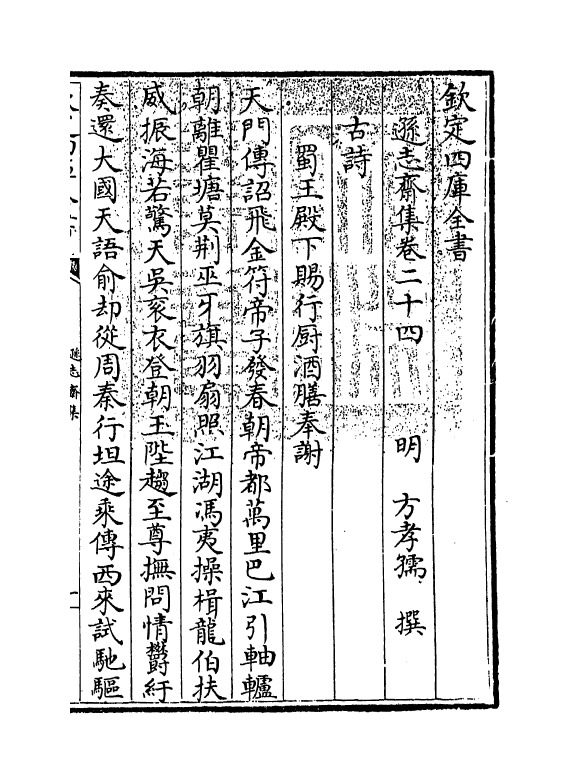 欽定四庫全書
遜志齋集卷二十四　明　方孝孺　撰
古詩
蜀王殿下賜行厨酒膳奉謝
天門傳詔飛金符帝子發春朝帝都萬里巴江引軸轤
朝離瞿塘莫荆巫牙旗羽扇照江湖馮夷操楫龍伯扶
威振海若驚天吳衮衣登朝玉陛趨至尊撫問情欝紆
奏還大國天語俞却從周秦行坦途乘傳西來試馳驅
遜志齋集
一